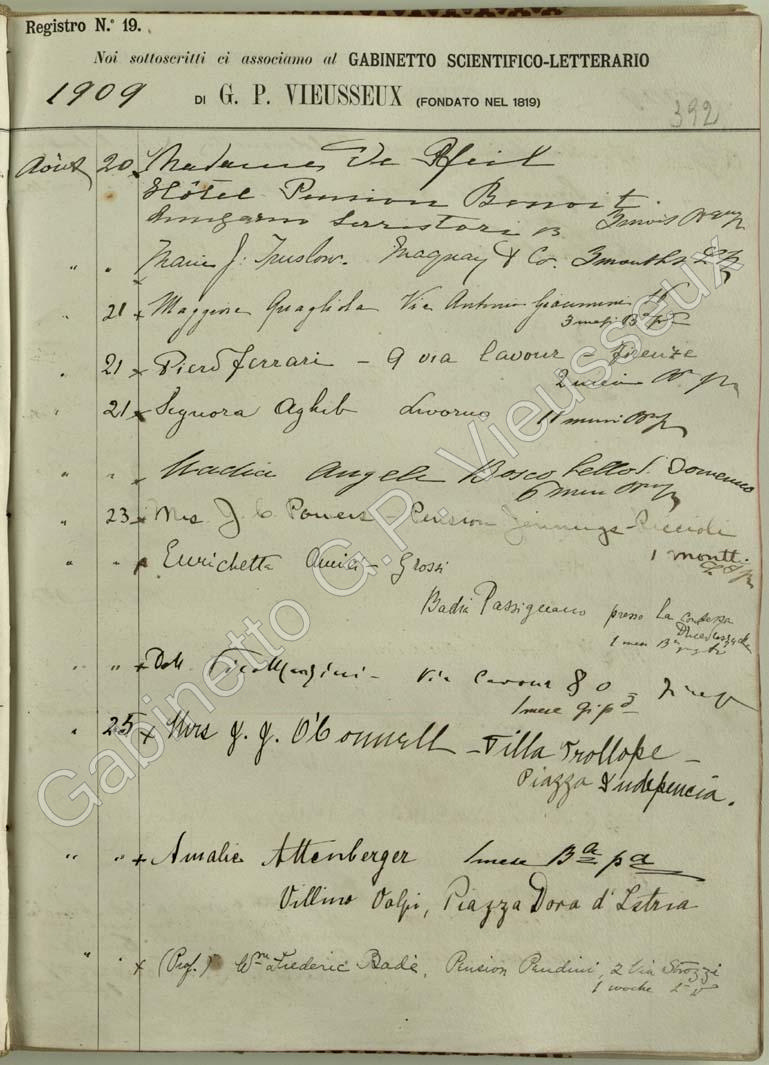 Registro N.º 19.
Noi sottoscritti ci associamo al GABINETTO SCIENTIFICO-LETTERARIO
1909 DI G. P. VIEUSSEUX (FONDATO NEL 1819)
392
Août 20 Madame De Pfeil
Hôtel Pension Benoit
Lungarno Serristori 13 3 mois
" " Marie J. Truslow. Maquay & Co. 3 months
" 21 x Maggiore Quagliola Via Antonio
3 mesi
" 21 x Piero Ferrari - 9 via Cavour - Firenze
2 mesi
" 21 x Signora Aghib Livorno 11 mesi
" " Nadia Angeli Bosco
6 mesi
" 23 x Mrs J C Powers - Pension Jennings-Riccioli
1 month
" " x Enrichetta Amici - Grossi
Badia Passignano presso la contessa
1 mese
" " x Dott. Via Cavour 80 -
1 mese
" 25 x Mrs J. J. O'Connell - Villa Trollope -
Piazza Indepencia.
" " x Amalie Attenberger 1 mese Ba pa
Villino Volpi, Piazza Dora d'Istria
" " x (Prof.) Wm Frederic Badè, Pension Pendini, 2 Via Strozzi
1 woche
Gabinetto G.P. Vieusseux